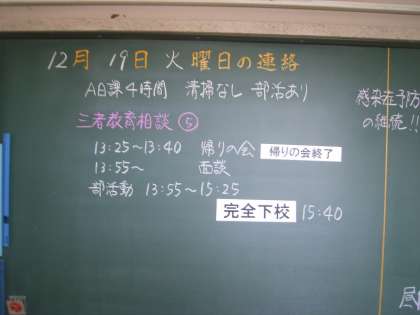 12月 19日 火曜日の連絡
A日課4時間 清掃なし 部活あり
三者教育相談 ⑤
13:25～13:40 帰りの会 帰りの会終了
13:55～ 面談
部活動 13:55～15:25
完全下校 15:40
感染症予防
の継続!!